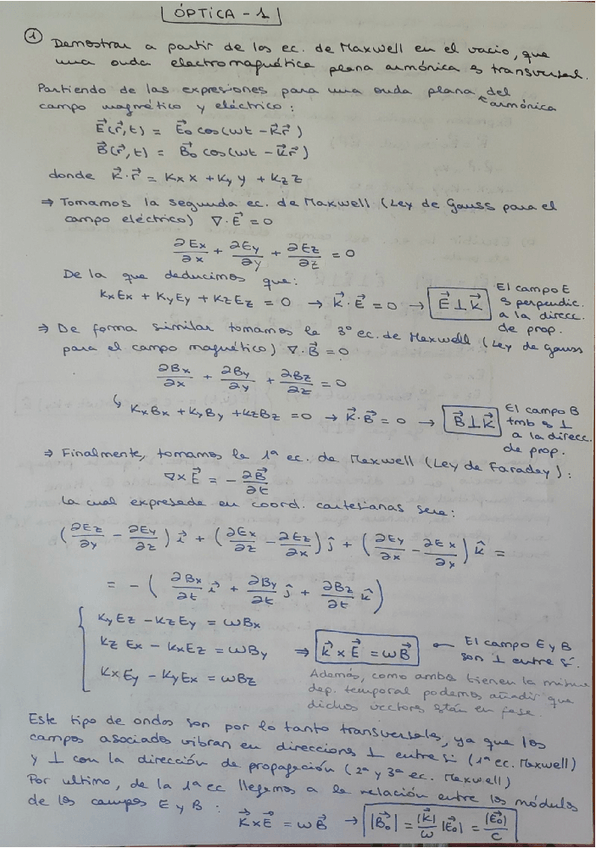 ÓPTICA - 1
① Demostrar a partir de las ec. de Maxwell en el vacío, que
una onda electromagnética plana armónica es transversal.
Partiendo de las expresiones para una onda plana armónica del
campo magnético y eléctrico:
E⃗(r⃗,t) = E⃗₀ cos(ωt - K⃗r⃗)
B⃗(r⃗,t) = B⃗₀ cos(ωt - K⃗r⃗)
donde K⃗·r⃗ = Kx x + Ky y + Kz z
⇒ Tomamos la segunda ec. de Maxwell (Ley de Gauss para el
campo eléctrico) ∇·E⃗ = 0
∂Ex/∂x + ∂Ey/∂y + ∂Ez/∂z = 0
De la que deducimos que:
KxEx + KyEy + KzEz = 0 → K⃗·E⃗ = 0 → E⃗ ⊥ K⃗
El campo E
es perpendic.
a la direcc.
de prop.
⇒ De forma similar tomamos la 3º ec. de Maxwell (Ley de Gauss
para el campo magnético) ∇·B⃗ = 0
∂Bx/∂x + ∂By/∂y + ∂Bz/∂z = 0
↳ KxBx + KyBy + KzBz = 0 → K⃗·B⃗ = 0 → B⃗ ⊥ K⃗
El campo B
tmb es ⊥
a la direcc.
de prop.
⇒ Finalmente, tomamos la 1ª ec. de Maxwell (Ley de Faraday):
∇×E⃗ = - ∂B⃗/∂t
la cual expresada en coord. cartesianas sera:
(∂Ez/∂y - ∂Ey/∂z) i⃗ + (∂Ex/∂z - ∂Ez/∂x) ĵ + (∂Ey/∂x - ∂Ex/∂y) k̂ =
= - (∂Bx/∂t i⃗ + ∂By/∂t ĵ + ∂Bz/∂t k̂)
KyEz - KzEy = ωBx
KzEx - KxEz = ωBy ⇒ K⃗ × E⃗ = ωB⃗
KxEy - KyEx = ωBz
← El campo E y B
son ⊥ entre sí.
Además, como ambos tienen la misma
dep. temporal podemos añadir que
dichos vectores están en fase.
Este tipo de ondas son por lo tanto transversales, ya que los
campos asociados vibran en direcciones ⊥ entre sí (1ª ec. Maxwell)
y ⊥ con la dirección de propagación (2ª y 3ª ec. Maxwell)
Por ultimo, de la 1ª ec llegamos a la relación entre los módulos
de los campos E y B : K⃗×E⃗ = ωB⃗ → |B⃗₀| = |K⃗|/ω |E⃗₀| = |E⃗₀|/c